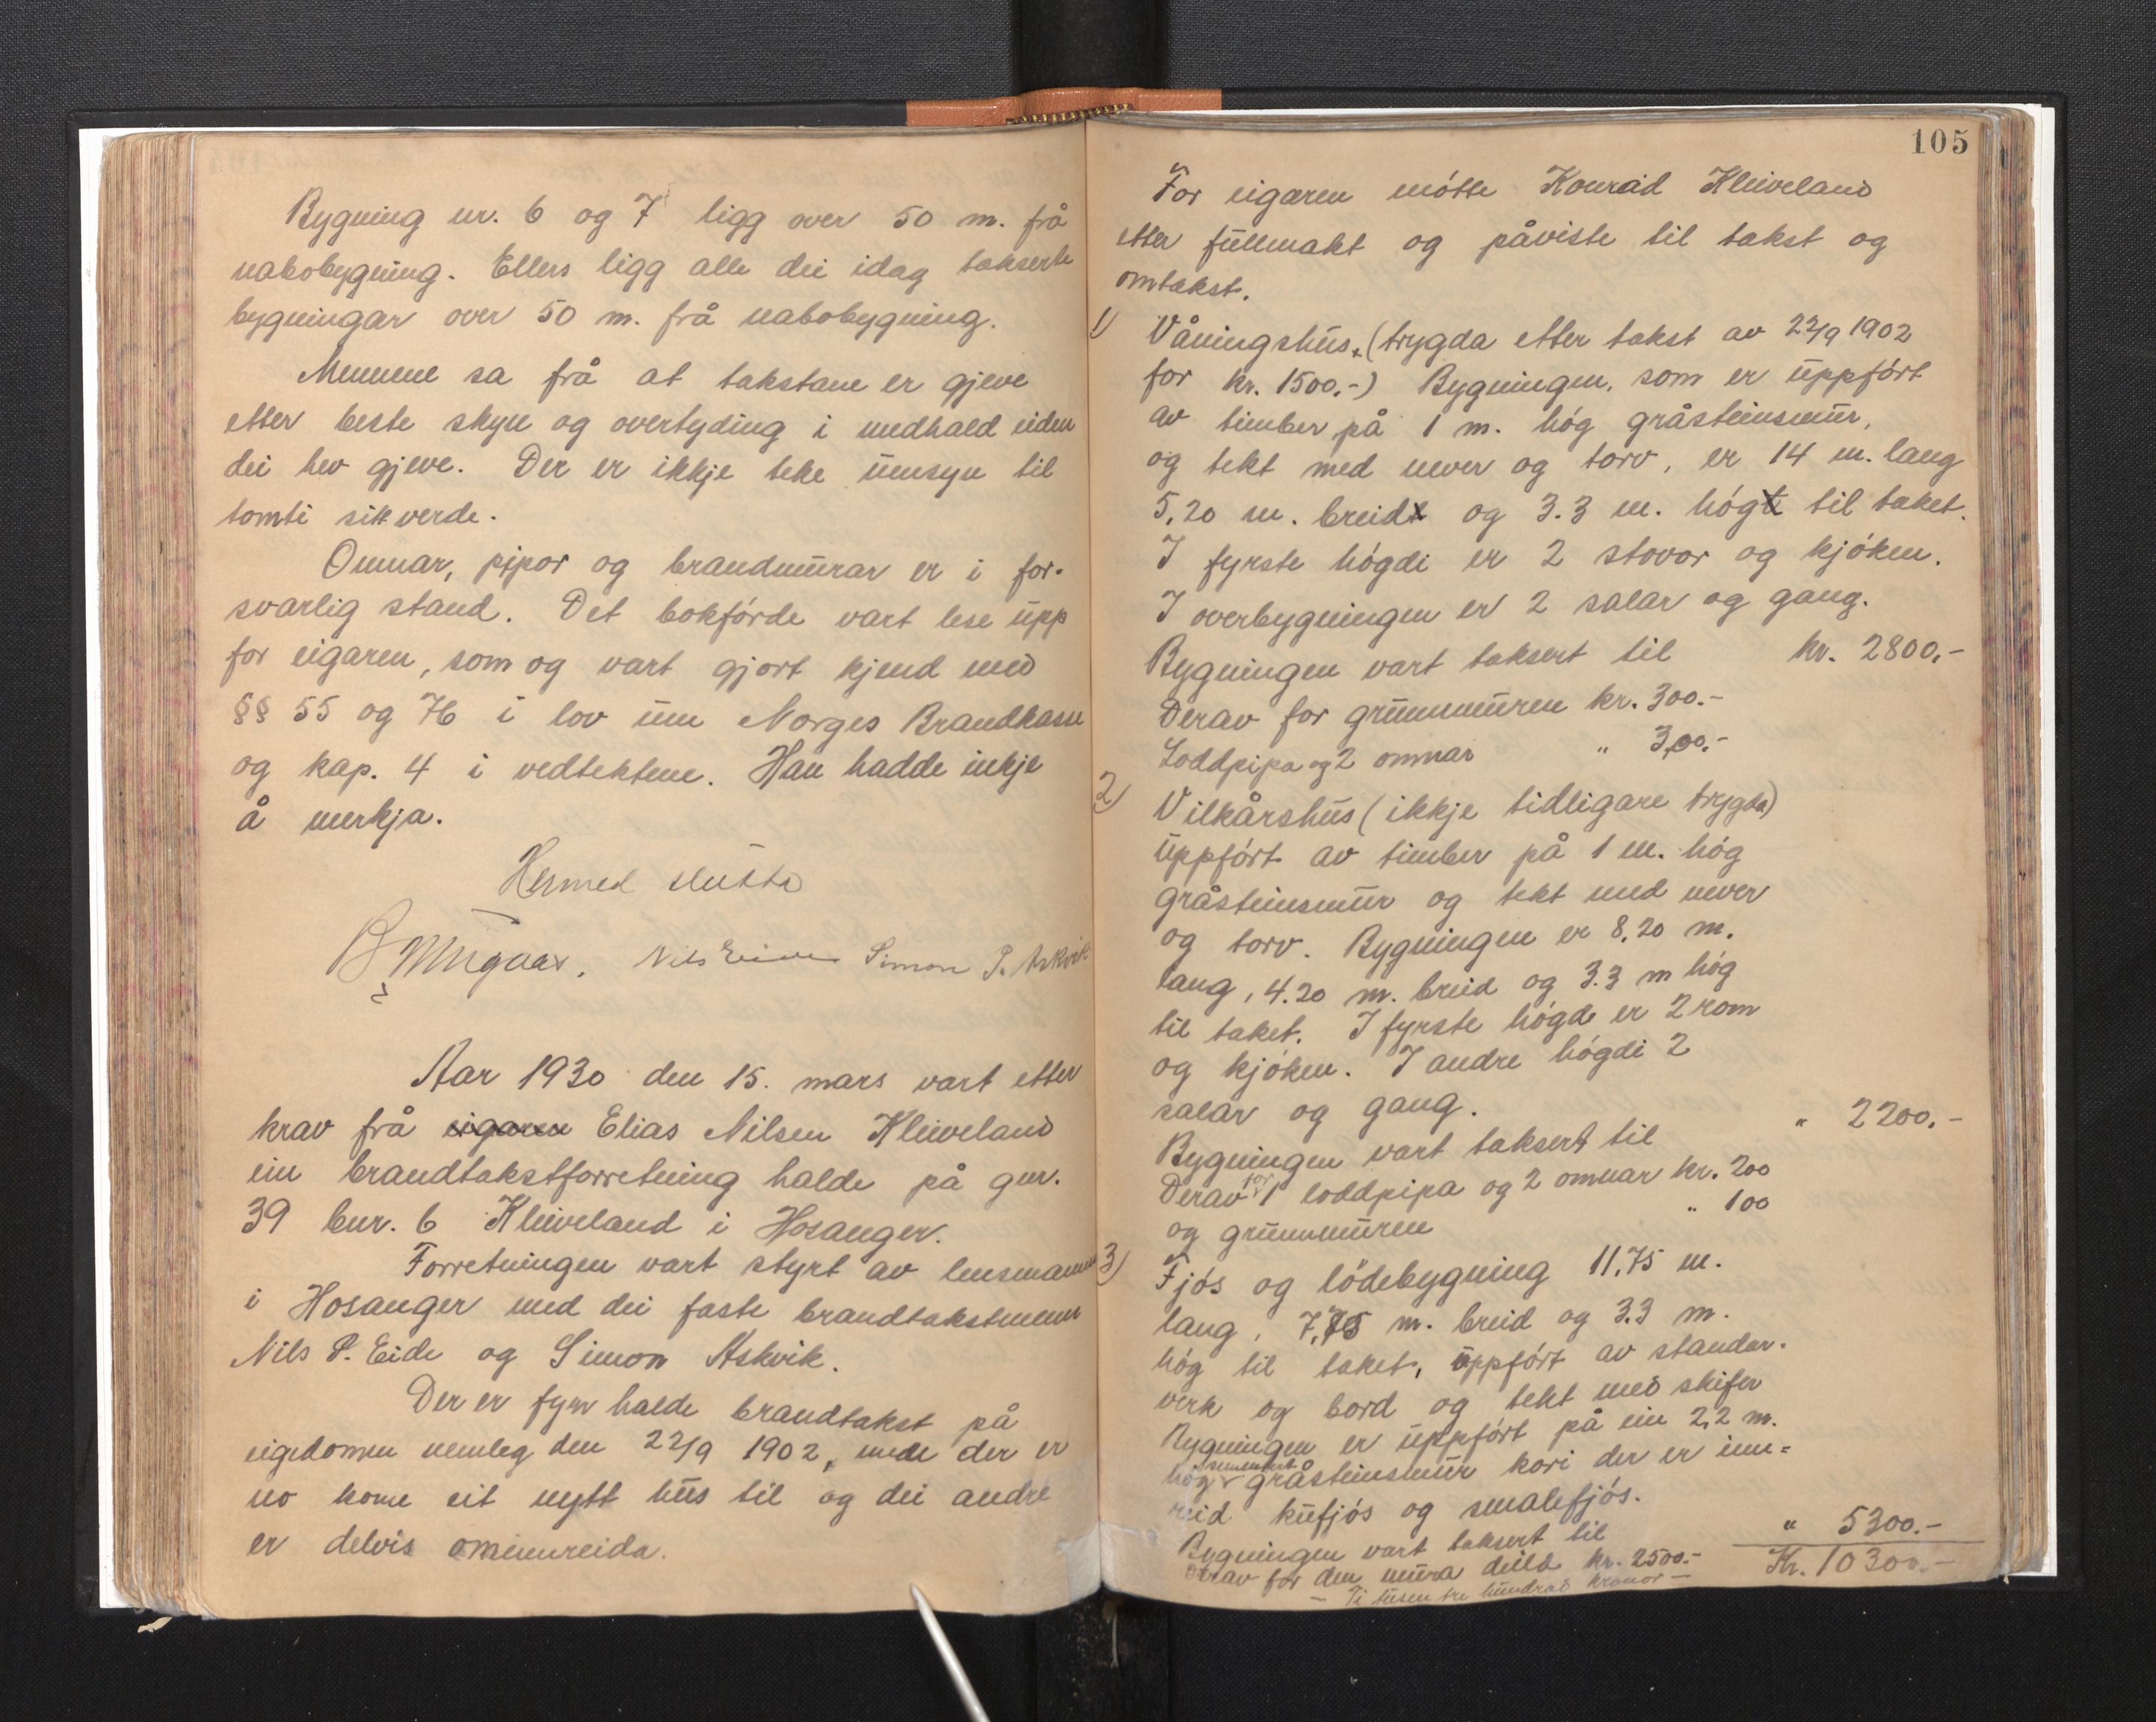 Bygning nr. 6 og 7 ligg over 50 m. frå
nabobygning. Ellers ligg alle dei idag takserte
bygningar over 50 m. frå nabobygning.
Mennene sa frå at takstane er gjeve
etter beste skyn og overtyding i medhald eiden
dei hev gjeve. Der er ikkje teke umsyn til
tomti sitt verde.
Omnar, pipor og brandmurar er i for-
svarlig stand. Det bokførde vart lese upp
for eigaren, som og vart gjort kjend med
§§ 55 og 76 i lov um Norges Brandkasse
og kap. 4 i vedtektene. Han hadde inkje
å merkja.
Hermed slutta
Nils Eide Simon P. Askvik
Aar 1930 den 15. mars vart etter
krav frå eigaren Elias Nilsen Kleiveland
ein brandtakstforretning halde på gnr.
39 bnr. 6 Kleiveland i Hosanger.
Forretningen vart styrt av lensmannen
i Hosanger med dei faste brandtakstmenn
Nils P. Eide og Simon Askvik.
Der er fyrr halde brandtakst på
eigedomen nemleg den 22/9 1902, men der er
no kome eit nytt hus til og dei andre
er delvis ominnreida.
105
For eigaren møtte Konrad Kleiveland
etter fullmakt og påviste til takst og
omtakst.
1) Våningshus, (trygda etter takst av 22/9 1902
for kr. 1500,-) Bygningen, som er uppført
av timber på 1 m. høg gråsteinsmur,
og tekt med never og torv, er 14 m. lang
5,20 m. breidt og 3.3 m. høgt til taket.
I fyrste høgdi er 2 stovor og kjøken.
I overbygningen er 2 salar og gang.
Bygningen vart taksert til kr. 2800,-
Derav for grunnmuren kr. 300.-
Loddpipa og 2 omnar " 300.-
2) Vilkårshus (ikkje tidligare trygda)
uppført av timber på 1 m. høg
gråsteinsmur og tekt med never
og torv. Bygningen er 8,20 m.
lang, 4.20 m. breid og 3.3 m høg
til taket. I fyrste høgde er 2 rom
og kjøken. I andre høgdi 2
salar og gang.
Bygningen vart taksert til " 2200,-
Derav for 1 loddpipa og 2 omnar kr. 200
og grunnmuren " 100
3) Fjøs og lødebygning 11,75 m.
lang, 7,75 m. breid og 3.3 m.
høg til taket, uppført av standar-
verk og bord og tekt med skifer
Bygningen er uppført på ein 2,2 m.
høg sementert gråsteinsmur kori der er inn-
reid kufjøs og smalefjøs.
Bygningen vart taksert til " 5300.-
Derav for den mura deild kr. 2500.- Kr. 10300.-
- Ti tusen tre hundrad kronor -